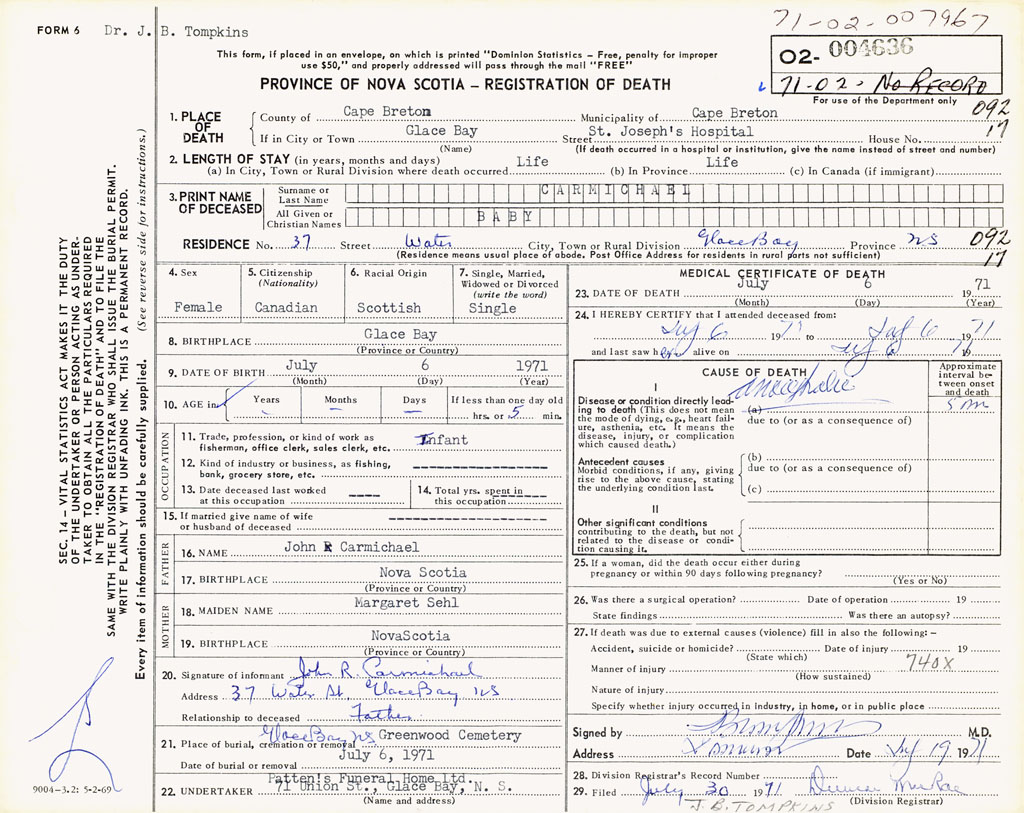 71-02-007967
FORM 6 Dr. J. B. Tompkins
02- 004636
This form, if placed in an envelope, on which is printed "Dominion Statistics – Free, penalty for improper
use $50," and properly addressed will pass through the mail "FREE"
71-02- No RECORD
PROVINCE OF NOVA SCOTIA – REGISTRATION OF DEATH
For use of the Department only
092
17
1. PLACE OF DEATH
County of Cape Breton Municipality of Cape Breton
If in City or Town Glace Bay Street St. Joseph's Hospital House No.
(Name) (If death occurred in a hospital or institution, give the name instead of street and number)
2. LENGTH OF STAY (in years, months and days) Life Life
(a) In City, Town or Rural Division where death occurred (b) In Province (c) In Canada (if immigrant)
3. PRINT NAME OF DECEASED
Surname or Last Name CARMICHAEL
All Given or Christian Names BABY
RESIDENCE No. 37 Street Water City, Town or Rural Division Glace Bay Province NS 092
(Residence means usual place of abode. Post Office Address for residents in rural parts not sufficient) 17
4. Sex Female
5. Citizenship (Nationality) Canadian
6. Racial Origin Scottish
7. Single, Married, Widowed or Divorced (write the word) Single
8. BIRTHPLACE Glace Bay
(Province or Country)
9. DATE OF BIRTH July 6 1971
(Month) (Day) (Year)
10. AGE in Years Months Days If less than one day old
hrs. or 5 min.
OCCUPATION
11. Trade, profession, or kind of work as fisherman, office clerk, sales clerk, etc. Infant
12. Kind of industry or business, as fishing, bank, grocery store, etc.
13. Date deceased last worked at this occupation
14. Total yrs. spent in this occupation
15. If married give name of wife or husband of deceased
FATHER
16. NAME John R Carmichael
17. BIRTHPLACE Nova Scotia
(Province or Country)
MOTHER
18. MAIDEN NAME Margaret Sehl
19. BIRTHPLACE NovaScotia
(Province or Country)
20. Signature of informant John R. Carmichael
Address 37 Water St Glace Bay NS
Relationship to deceased Father
Glace Bay NS Greenwood Cemetery
21. Place of burial, cremation or removal
July 6, 1971
Date of burial or removal
Patten's Funeral Home Ltd.
22. UNDERTAKER 71 Union St., Glace Bay, N. S.
(Name and address)
MEDICAL CERTIFICATE OF DEATH
23. DATE OF DEATH July 6 1971
(Month) (Day) (Year)
24. I HEREBY CERTIFY that I attended deceased from:
July 6 1971 to July 6 1971
and last saw her alive on July 6 1971
CAUSE OF DEATH
Approximate interval between onset and death
I
Disease or condition directly leading to death (This does not mean the mode of dying, e.g., heart failure, asthenia, etc. It means the disease, injury, or complication which caused death.)
(a) 5 m
due to (or as a consequence of)
Antecedent causes
Morbid conditions, if any, giving rise to the above cause, stating the underlying condition last.
(b)
due to (or as a consequence of)
(c)
II
Other significant conditions
contributing to the death, but not related to the disease or condition causing it.
25. If a woman, did the death occur either during pregnancy or within 90 days following pregnancy?
(Yes or No)
26. Was there a surgical operation? Date of operation 19
State findings Was there an autopsy?
27. If death was due to external causes (violence) fill in also the following: –
Accident, suicide or homicide? Date of injury 19
(State which)
740X
Manner of injury
(How sustained)
Nature of injury
Specify whether injury occurred in industry, in home, or in public place
Signed by M.D.
Address Date July 19 1971
28. Division Registrar's Record Number
29. Filed July 30 1971
(Division Registrar)
J.B. TOMPKINS
SEC. 14 – VITAL STATISTICS ACT MAKES IT THE DUTY
OF THE UNDERTAKER OR PERSON ACTING AS UNDER-
TAKER TO OBTAIN ALL THE PARTICULARS REQUIRED
IN THE "REGISTRATION OF DEATH" AND TO FILE THE
SAME WITH THE DIVISION REGISTRAR WHO SHALL ISSUE THE BURIAL PERMIT.
WRITE PLAINLY WITH UNFADING INK. THIS IS A PERMANENT RECORD.
Every item of information should be carefully supplied. (See reverse side for instructions.)
9004-3.2: 5-2-69